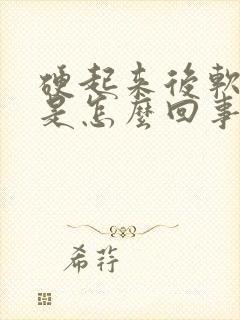 硬起来後軟
是怎麼回事
希荇